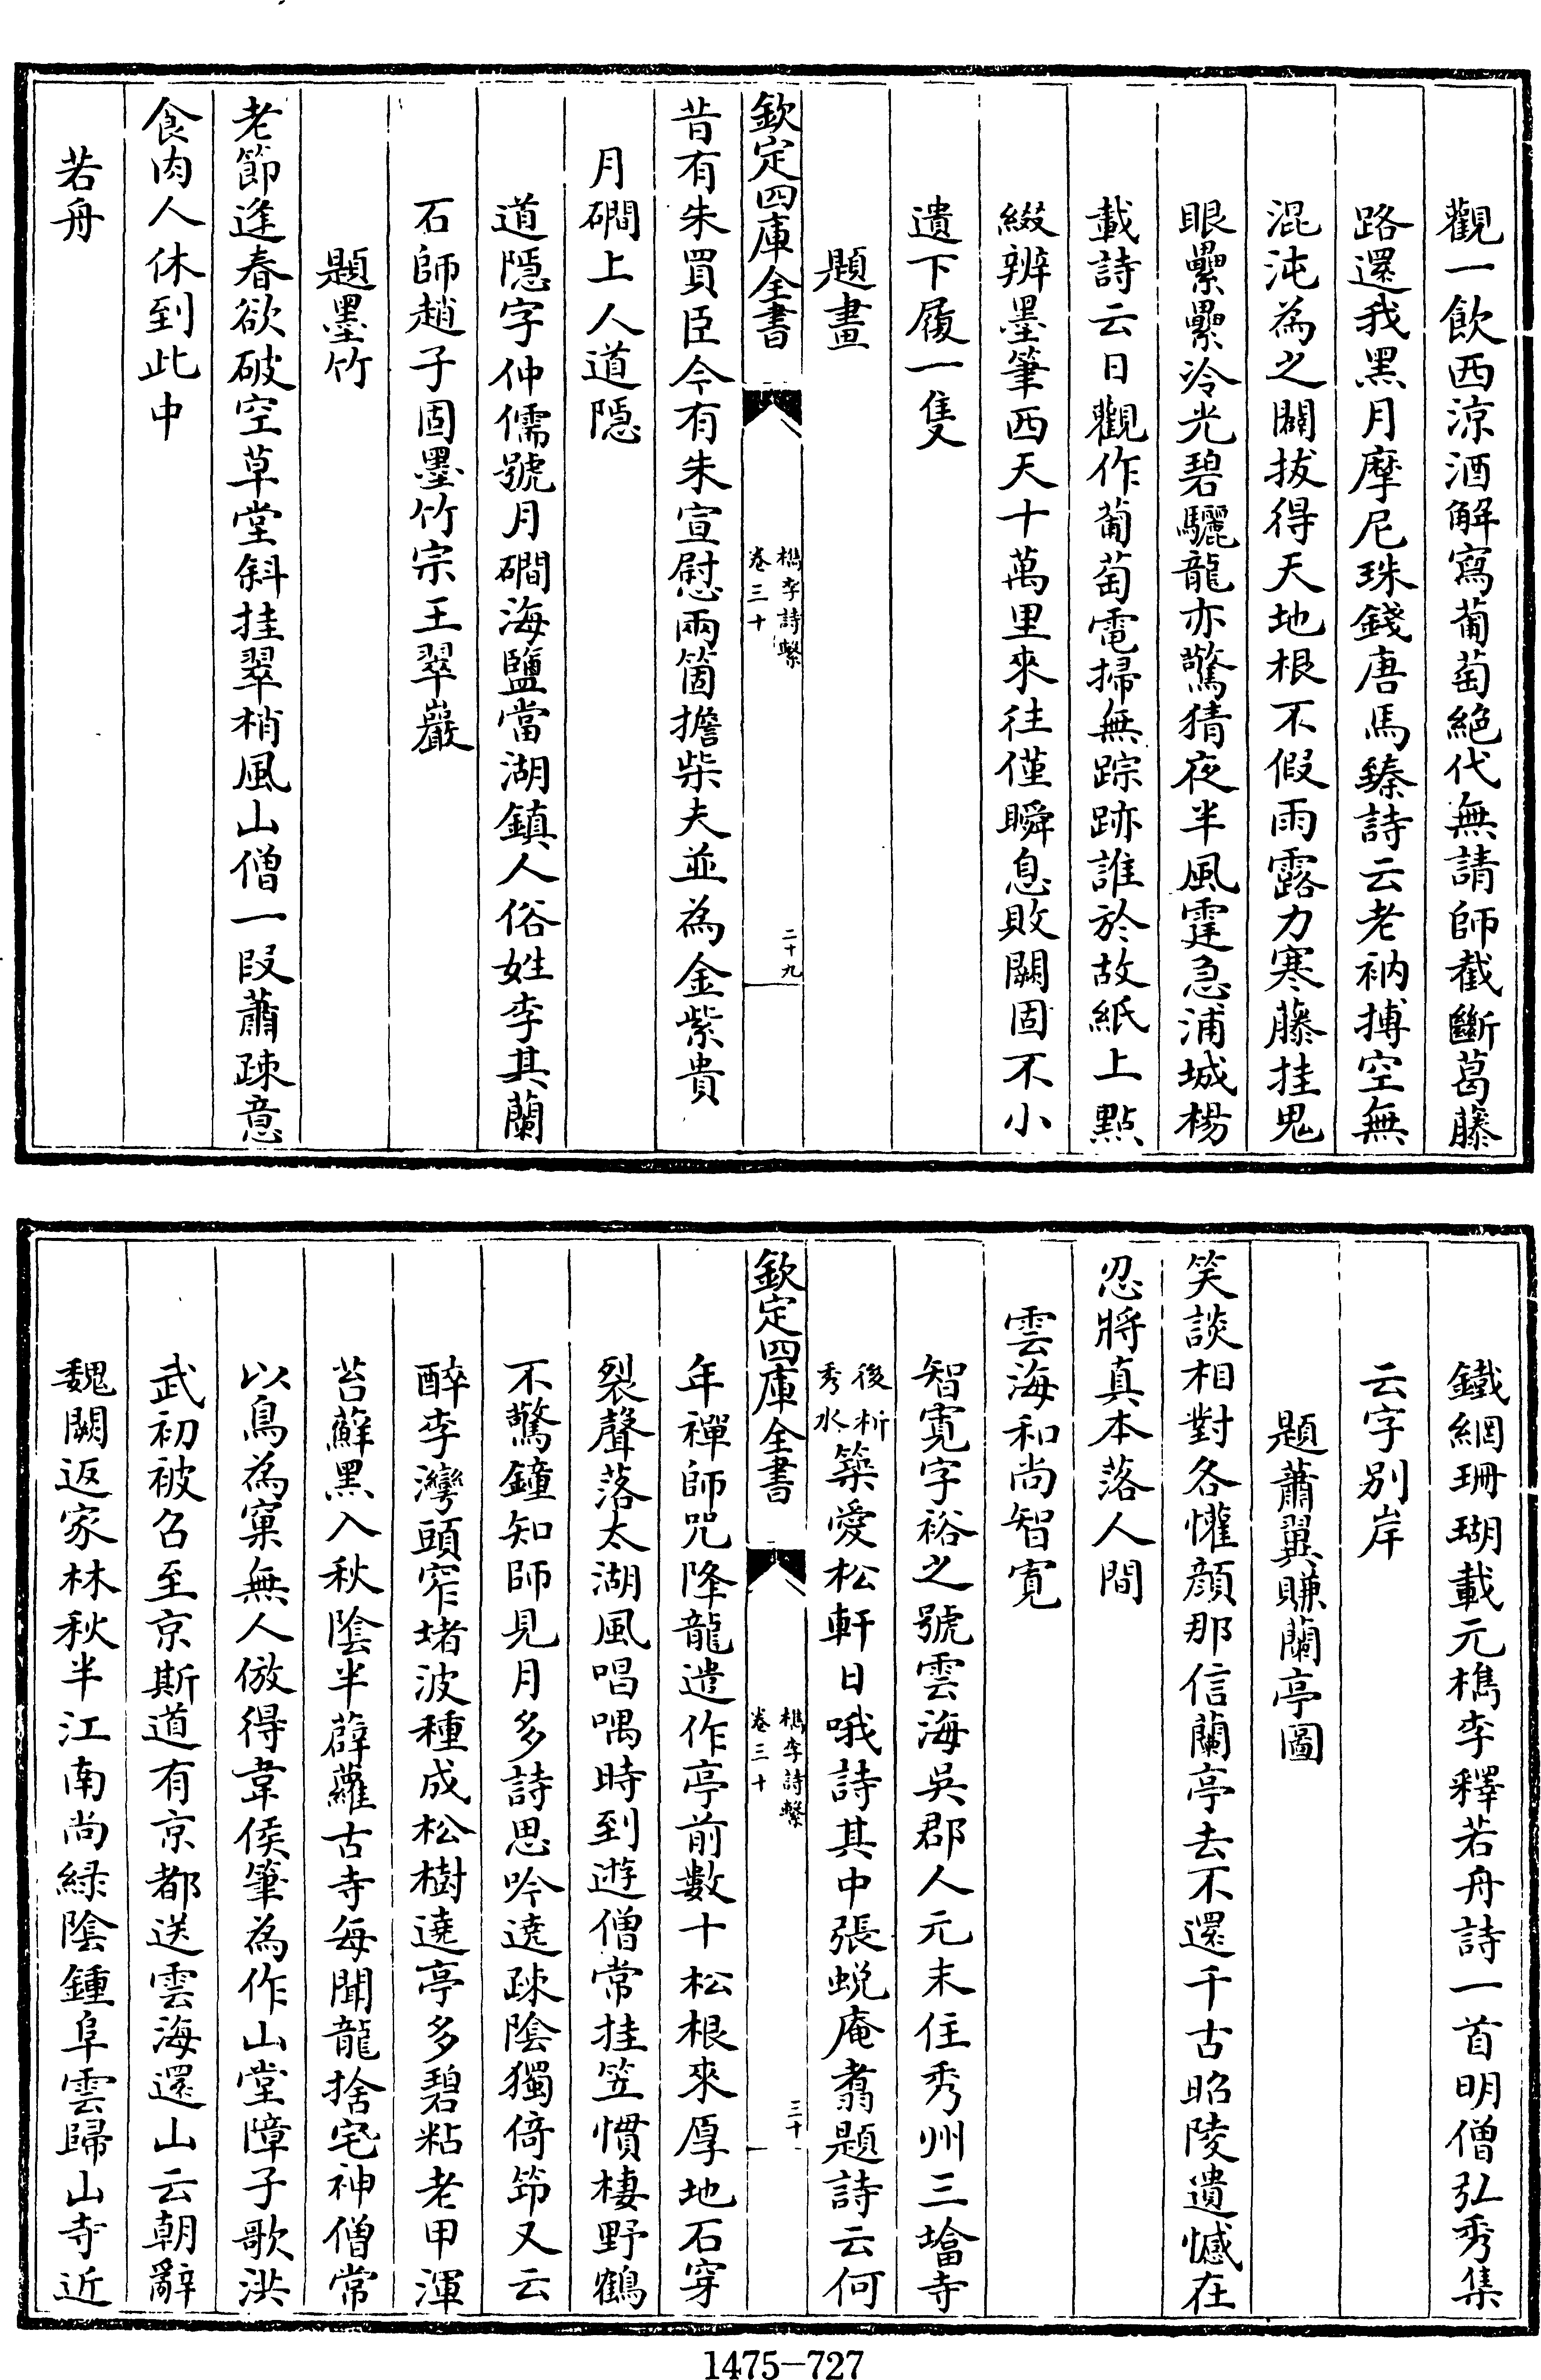 觀一飲西涼酒解寫葡萄絶代無請師截斷葛藤
路還我黑月摩尼珠錢唐馬臻詩云老衲摶空無
混沌為之闢拔得天地根不假雨露力寒藤挂鬼
眼纍纍冷光碧驪龍亦驚猜夜半風霆急浦城楊
載詩云日觀作葡萄電掃無踪跡誰於故紙上點
綴辨墨筆西天十萬里來往僅瞬息敗闕固不小
遺下履一隻
題畫
欽定四庫全書
檇李詩繫
卷三十
二十九
昔有朱買臣今有朱宣慰兩箇擔柴夫並為金紫貴
月磵上人道隱
道隱字仲儒號月磵海鹽當湖鎮人俗姓李其蘭
石師趙子固墨竹宗王翠巖
題墨竹
老節逢春欲破空草堂斜挂翠梢風山僧一段蕭疎意
食肉人休到此中
若舟
鐵網珊瑚載元檇李釋若舟詩一首明僧弘秀集
云字别岸
題蕭翼賺蘭亭圖
笑談相對各懽顔那信蘭亭去不還千古昭陵遺憾在
忍將真本落人間
雲海和尚智寛
智寛字裕之號雲海吳郡人元末住秀州三㙮寺
後析
秀水
築愛松軒日哦詩其中張蛻庵翥題詩云何
欽定四庫全書
檇李詩繫
卷三十
三十
年禪師咒降龍遣作亭前數十松根來厚地石穿
裂聲落太湖風唱喁時到遊僧常挂笠慣棲野鶴
不驚鐘知師見月多詩思吟遶疎陰獨倚筇又云
醉李灣頭窣堵波種成松樹遶亭多碧粘老甲渾
苔蘚黑入秋陰半薜蘿古寺每聞龍捨宅神僧常
以鳥為窠無人倣得韋侯筆為作山堂障子歌洪
武初被召至京斯道有京都送雲海還山云朝辭
魏闕返家林秋半江南尚緑陰鍾阜雲歸山寺近
1475-727